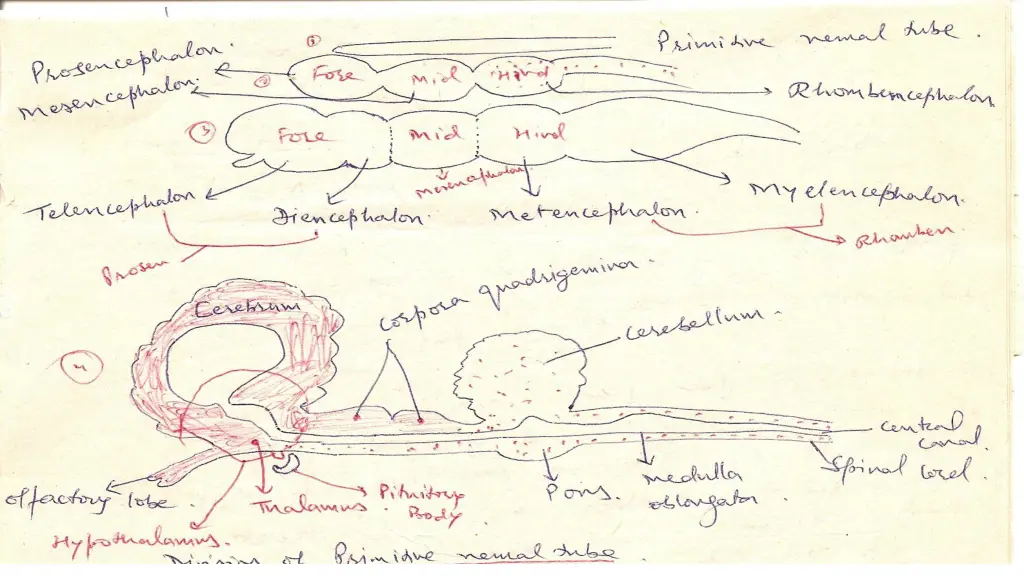 1
Primitive nemal tube.
Prosencephalon.
Mesencephalon.
② Fore Mid Hind
Rhombencephalon
③ Fore Mid Hind
Mesencephalon
Telencephalon
Diencephalon.
Metencephalon.
Myelencephalon.
Prosen
Rhomben.
Corpora quadrigemina.
Cerebrum
Cerebellum.
④
central canal.
Spinal Cord.
Olfactory lobe.
Hypothalamus.
Thalamus.
Pituitory Body
Pons.
Medulla oblongata
Division of Primitive nemal tube.